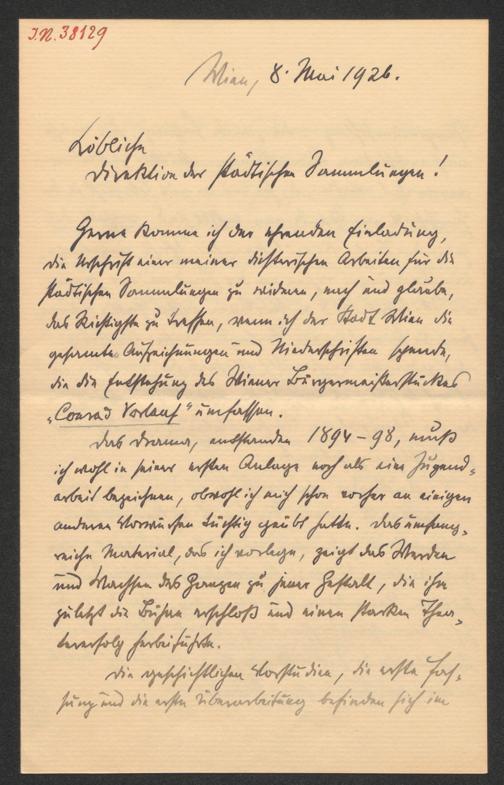 I.N. 38129
Wien, 8. Mai 1926.
Löbliche
Direktion der städtischen Sammlungen!
Gerne komme ich der ehrenden Einladung,
die Urschrift einer meiner dichterischen Arbeiten für die
städtischen Sammlungen zu widmen, nach und glaube,
das Richtigste zu treffen, wenn ich der Stadt Wien die
gesamten Aufzeichnungen und Niederschriften spende,
die die Entstehung des Wiener Bürgermeisterstückes
„Conrad Vorlauf“ umfassen.
Das Drama, entstanden 1894-98, muß
ich wohl in seiner ersten Anlage noch als eine Jugend-
arbeit bezeichnen, obwohl ich mich schon vorher an einigen
anderen Vorwürfen tüchtig geübt hatte. Das umfang-
reiche Material, das ich vorlege, zeigt das Werden
und Wachsen des Ganzen zu jener Gestalt, die ihm
zuletzt die Bühne erschloß und einen starken Thea-
tererfolg herbeiführte.
Die geschichtlichen Vorstudien, die erste Fas-
sung und die erste Überarbeitung befinden sich im